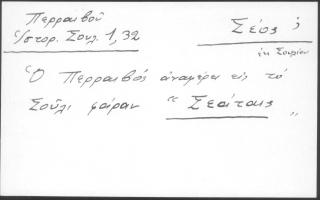 Περραιβοῦ
Ἱστορ. Σουλ. 1, 32
Σέος
ἐκ Σουλίου
Ὁ Περραιβός ἀναφέρει εἰς τό
Σοῦλι φάραν "Σεάτους"